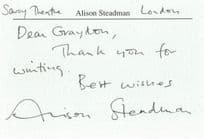 Savoy Theatre Alison Steadman London
Dear Graydon,
Thank you for
writing.
Best wishes
Alison Steadman